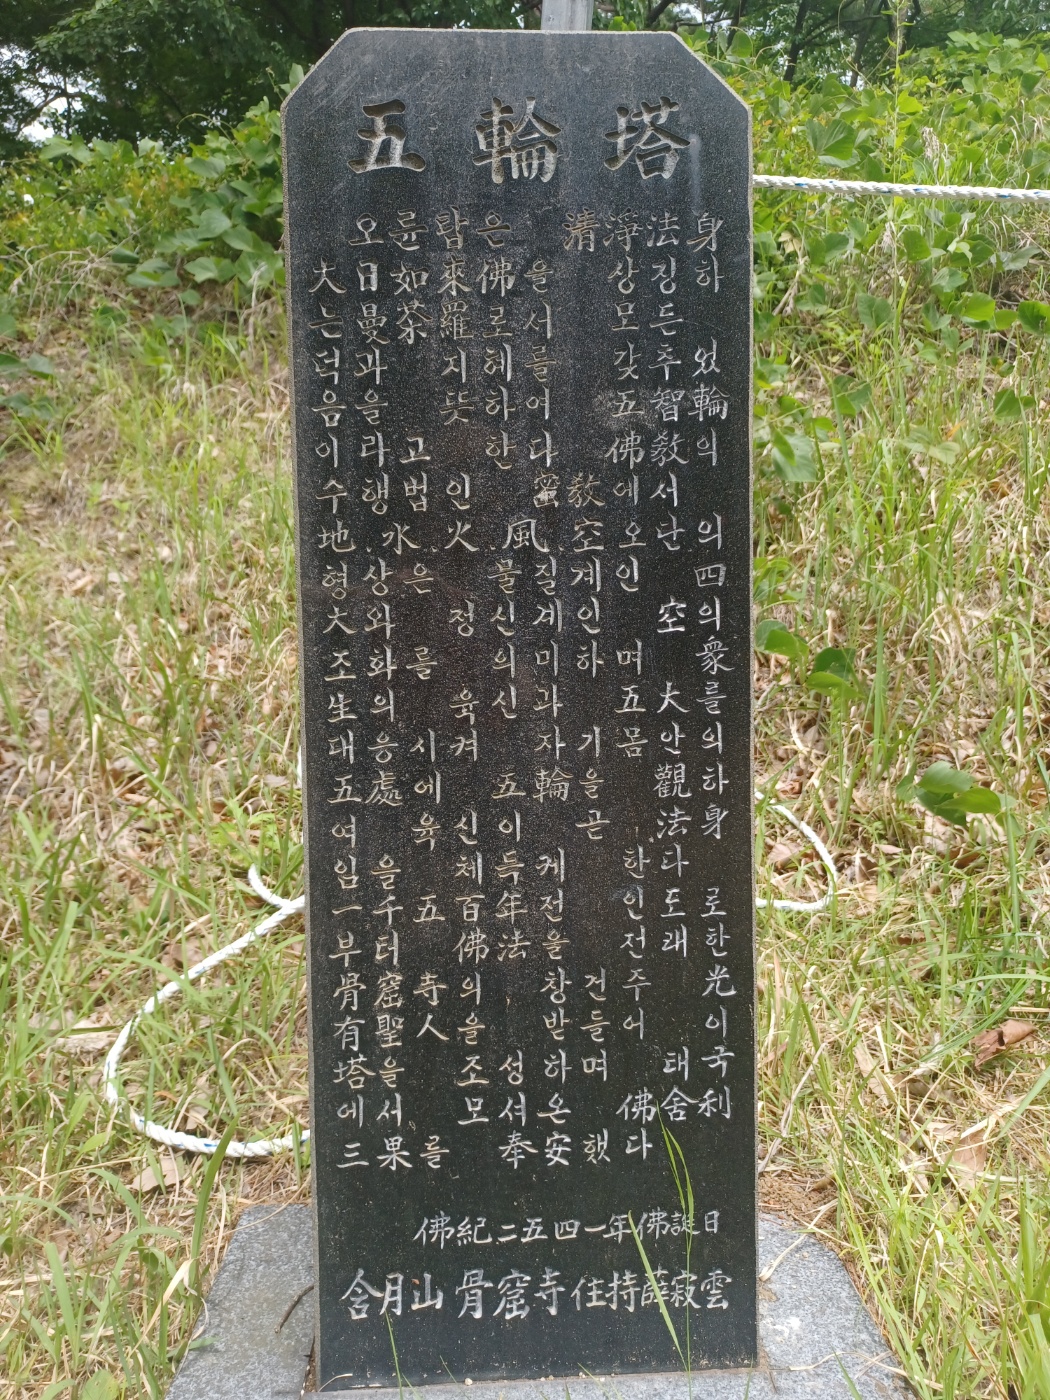 五輪塔
오륜탑은 清淨法身
大日如來佛을 상징하
는 曼茶羅로서 모든
덕과 지혜를 갖추었
음을 뜻하여 五智輪
이라 고한다 佛敎의
수행법인 蜜敎에서
地水火風空 오단의
형상은 물질계인 四
大와 정신계인 空의
조화를 의미하며 衆
生의 육신과 五大를
대응시켜 자기몸안의
五處에 五輪을 觀하
여 육신이 곧 法身
임을 체득케한다
一千五百年전 인도로
부터 佛法을 전래한
骨窟寺 창건주 光
有聖人을 받들어 이
塔을 조성하며 태국
에서 모셔온 佛舍利
三果를 奉安했다
佛紀二五四一年佛誕日
含月山 骨窟寺 住持薛寂雲